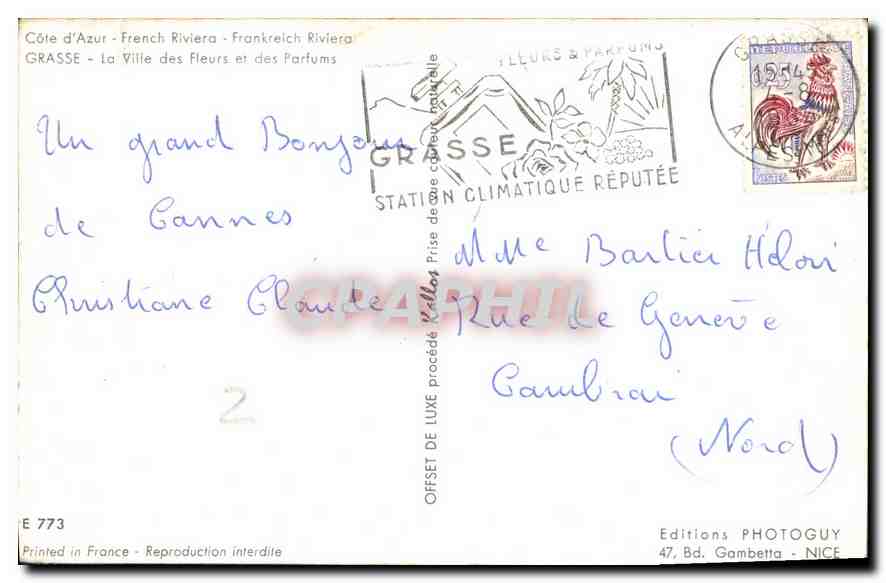 Côte d'Azur - French Riviera - Frankreich Riviera
GRASSE - La Ville des Fleurs et des Parfums
FLEURS & PARFUMS
GRASSE
STATION CLIMATIQUE RÉPUTÉE
15 54
-8
Un grand Bonjour
de Cannes
Christiane Claude
CPAPHIL
OFFSET DE LUXE procédé Kallos Prise de vue couleur naturelle
Mme Bartier
Rue de Genève
Cambrai
(Nord)
2
E 773
Printed in France - Reproduction interdite
Editions PHOTOGUY
47, Bd. Gambetta - NICE